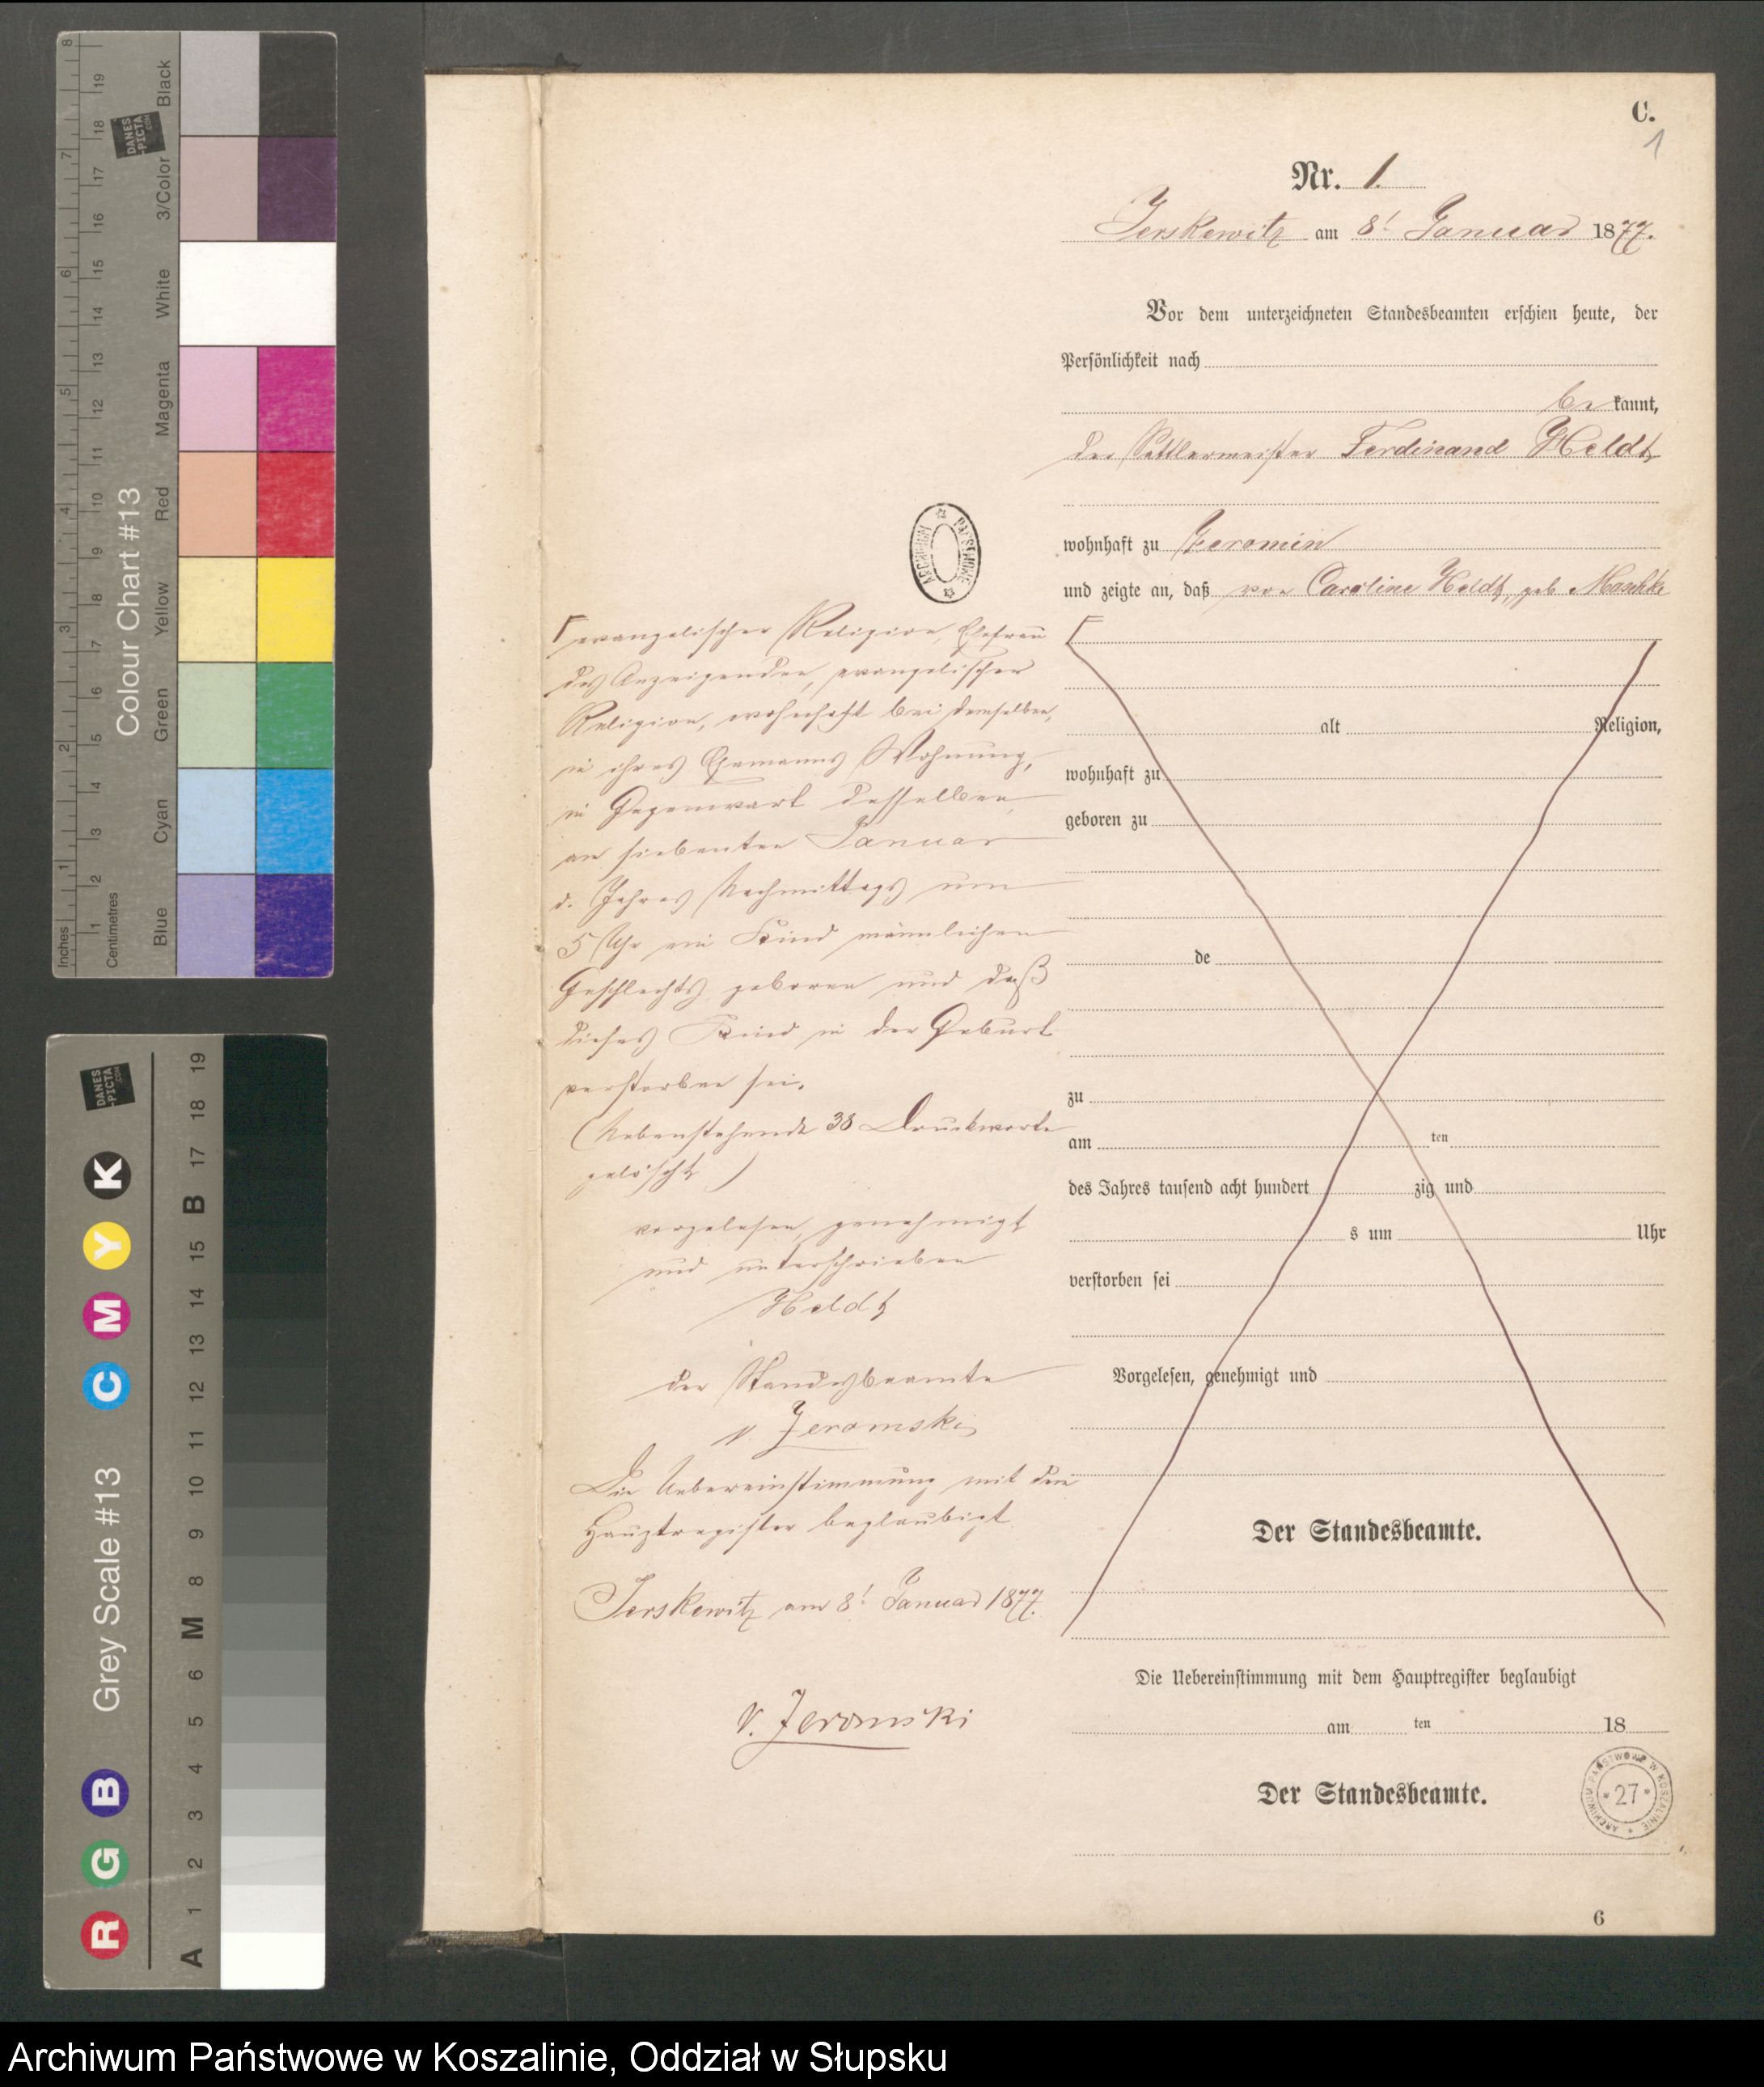 C.
1
Nr. 1.
Jerskewitz am 8t Januar 1877.
Vor dem unterzeichneten Standesbeamten erschien heute, der
Persönlichkeit nach
be kannt,
der Sattlermeister Ferdinand Heldt
wohnhaft zu Jeromin
und zeigte an, daß von Caroline Heldt, geb Maschke
alt Religion,
wohnhaft zu
geboren zu
de
zu
am ten
des Jahres tausend acht hundert zig und
s um Uhr
verstorben sei
Vorgelesen, genehmigt und
Der Standesbeamte.
Die Uebereinstimmung mit dem Hauptregister beglaubigt
am ten 18
Der Standesbeamte.
6
evangelischer Religion, Ehefrau
des Anzeigenden, evangelischer
Religion, wohnhaft bei demselben,
in ihres Ehemanns Wohnung,
in Gegenwart desselben,
am siebenten Januar
d. Jahres Nachmittags um
5 Uhr ein Kind männlichen
Geschlechts geboren und daß
dieses Kind in der Geburt
verstorben sei.
(Nebenstehende 38 Druckworte
gelöscht)
vorgelesen, genehmigt
und unterschrieben
Heldt
der Standesbeamte
v. Jeromski
Die Uebereinstimmung mit dem
Hauptregister beglaubigt
Jerskewitz am 8t Januar 1877.
v. Jeromski
ARCHIWUM PAŃSTWOWE
ARCHIWUM PAŃSTWOWE W KOSZALINIE
* 27 *
Colour Chart #13
Blue Cyan Green Yellow Red Magenta White 3/Color Black
Inches 1 2 3 4 5 6 7 8
Centimetres 1 2 3 4 5 6 7 8 9 10 11 12 13 14 15 16 17 18 19
DANES
-PICTA
.COM
Grey Scale #13
R G B C M Y K
A 1 2 3 4 5 6 M 8 9 10 11 12 13 14 15 B 17 18 19
DANES
-PICTA
.COM
Archiwum Państwowe w Koszalinie, Oddział w Słupsku